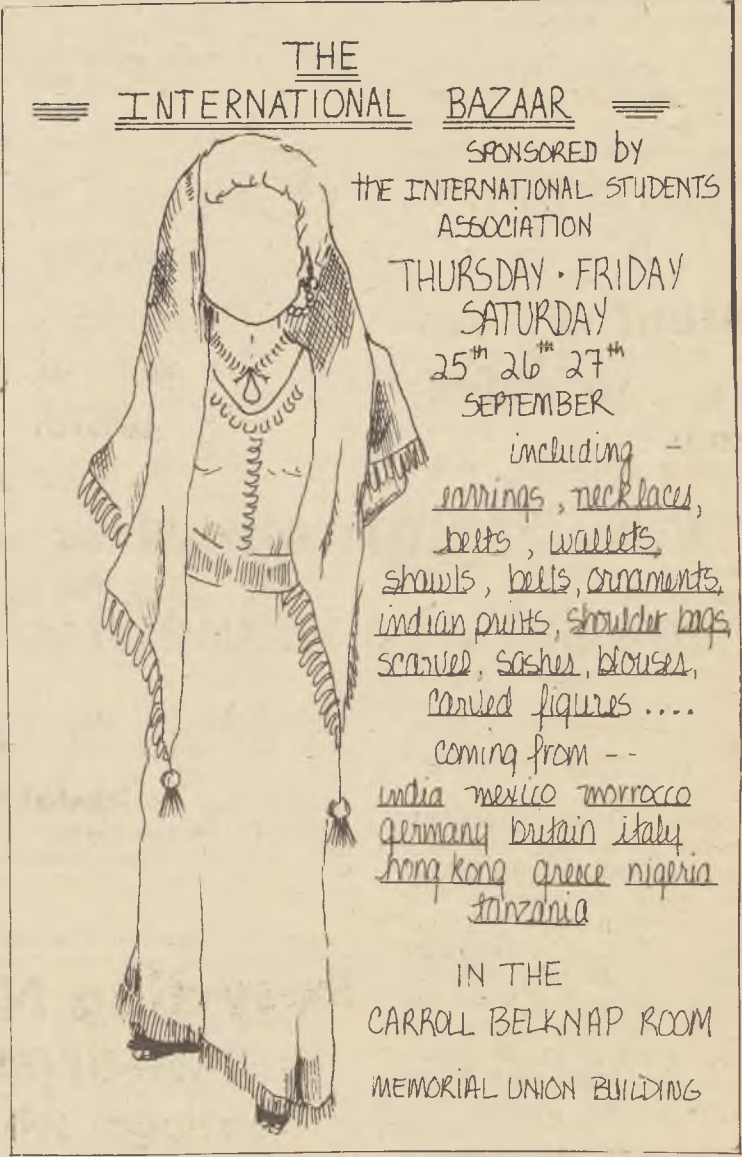 THE
INTERNATIONAL BAZAAR
SPONSORED by
the INTERNATIONAL STUDENTS
ASSOCIATION
THURSDAY · FRIDAY
SATURDAY
25th 26th 27th
SEPTEMBER
including -
earrings, necklaces,
belts, wallets,
shawls, bells, ornaments,
indian prints, shoulder bags,
scarves, sashes, blouses,
carved figures ....
coming from --
india mexico morrocco
germany britain italy
hong kong greece nigeria
tanzania
IN THE
CARROLL BELKNAP ROOM
MEMORIAL UNION BUILDING